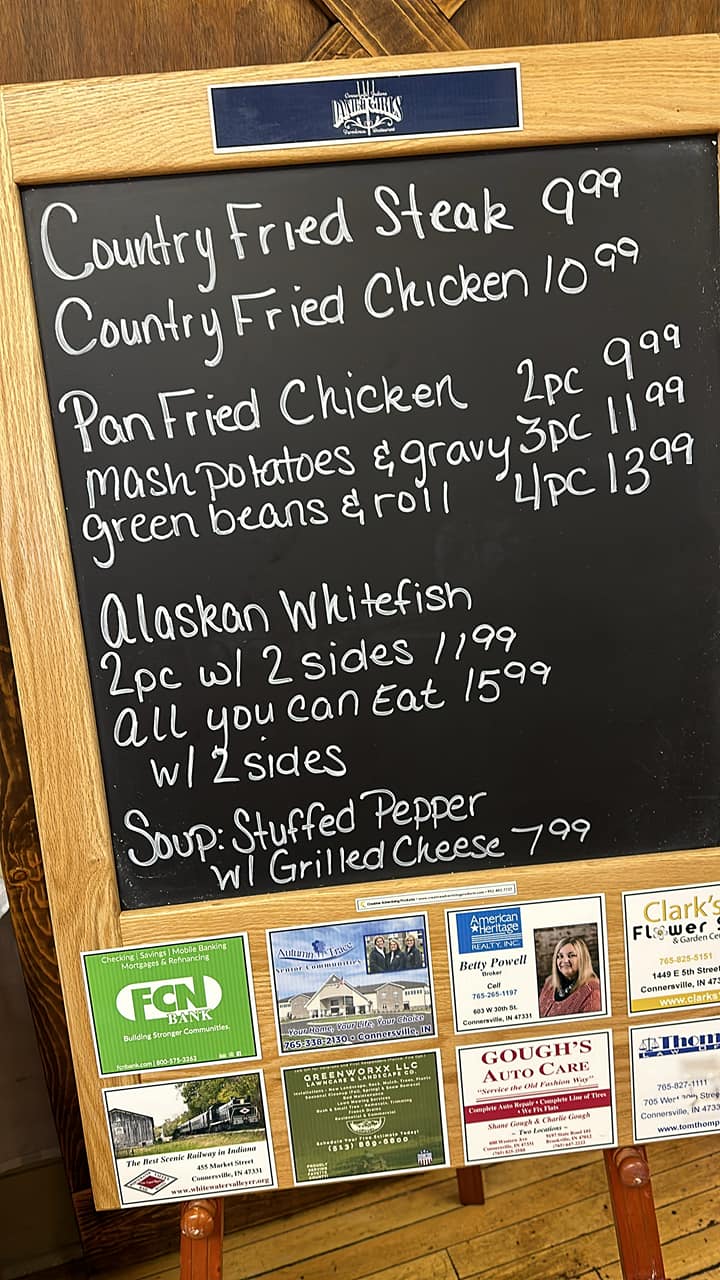 Country Fried Steak 9⁹⁹
Country Fried Chicken 10⁹⁹
Pan Fried Chicken 2pc 9⁹⁹
mash potatoes & gravy 3pc 11⁹⁹
green beans & roll 4pc 13⁹⁹
Alaskan Whitefish
2pc w/ 2 sides 11⁹⁹
all you can Eat 15⁹⁹
w/ 2 sides
Soup: Stuffed Pepper
w/ Grilled Cheese 7⁹⁹
Checking | Savings | Mobile Banking
Mortgages & Refinancing
FCN
BANK
Building Stronger Communities.
fcnbank.com | 800-575-3262
Autumn Trace
Senior Communities
Your Home, Your Life, Your Choice
765-338-2130 • Connersville, IN
American
Heritage
REALTY, INC.
Betty Powell
Broker
Cell
765-265-1197
603 W 30th St.
Connersville, IN 47331
Clark's
Flower
& Garden
765-825-5151
1449 E 5th Street
Connersville, IN
www.clarks
The Best Scenic Railway in Indiana
455 Market Street
Connersville, IN 47331
www.whitewatervalleyrr.org
GREENWORXX LLC
LAWNCARE & LANDSCAPE CO.
Schedule Your Free Estimate Today!
(513) 889-6800
GOUGH'S
AUTO CARE
"Service the Old Fashion Way"
Complete Auto Repair • Complete Line of Tires
• We Fix Flats
Shane Gough & Charlie Gough
~ Two Locations ~
Thom
LAW
765-827-1111
705 Stree
Connersville, IN
www.tomthomp